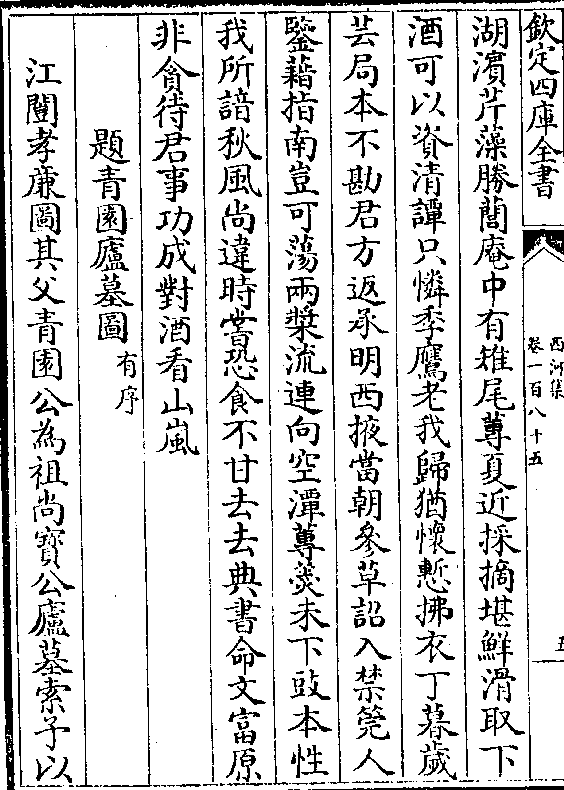 欽定四庫全書
西河集
卷一百八十五
五
湖濱芹藻勝蘭庵中有雉尾蓴夏近採摘堪鮮滑取下
酒可以資清譚只憐季鷹老我歸猶懷慙拂衣丁暮歲
芸局本不勘君方返承明西掖當朝參草詔入禁筦人
鑒藉指南豈可蕩兩槳流連向空潭蓴羮未下豉本性
我所諳秋風尚違時嘗恐食不甘去去典書命文富原
非貪待君事功成對酒看山嵐
題青園廬墓圖有序
江闓孝廉圖其父青園公為祖尚寶公廬墓索予以